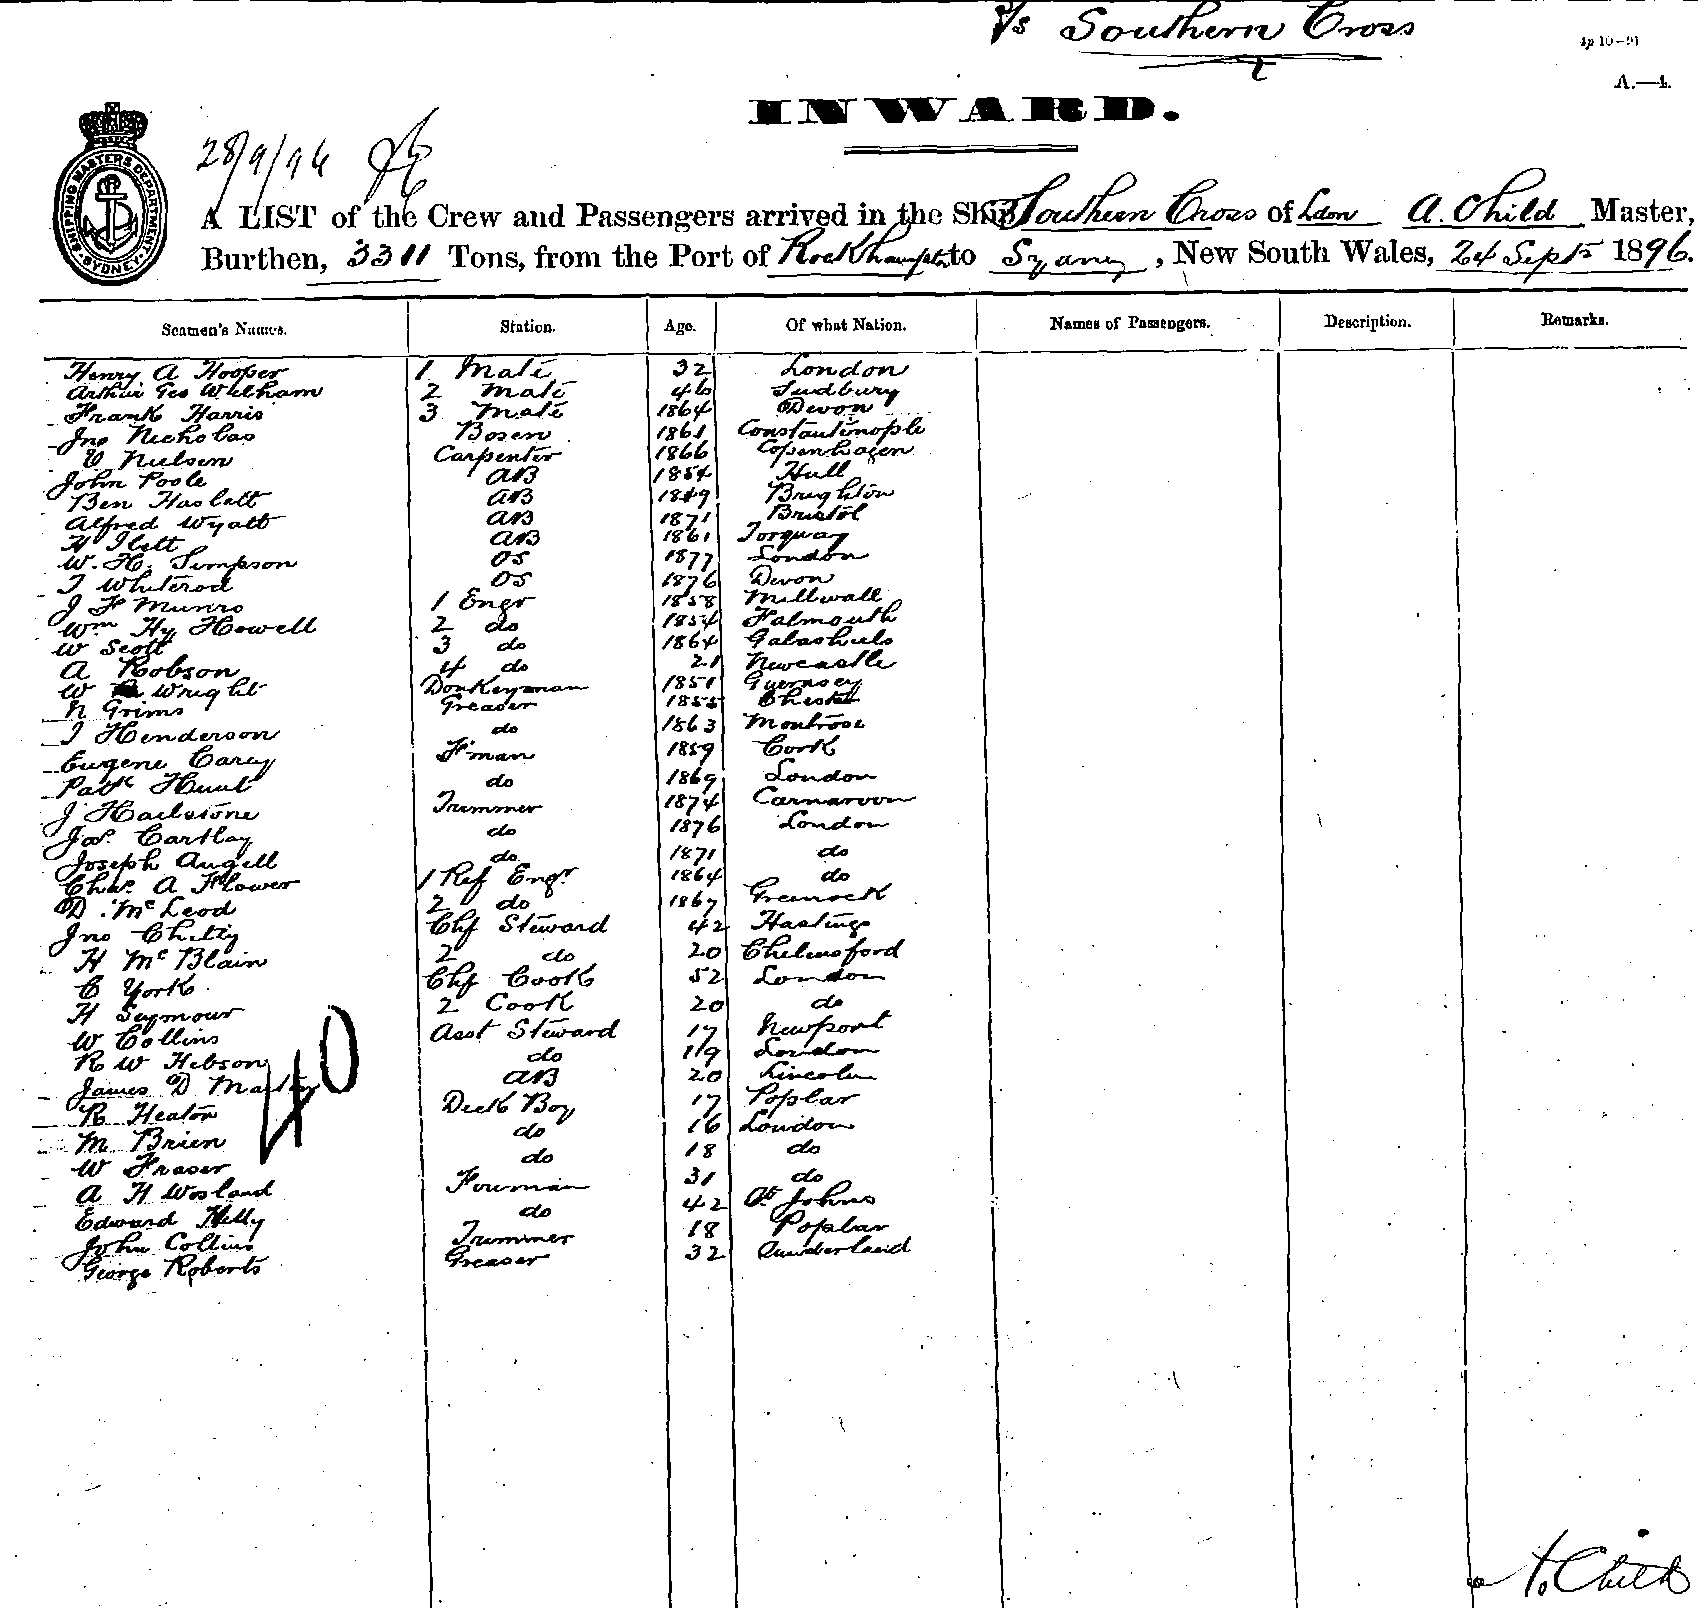 S/S Southern Cross
4p 10-91
A.—4.
INWARD.
28/9/96
SHIPPING MASTERS DEPARTMENT SYDNEY
A LIST of the Crew and Passengers arrived in the Ship Southern Cross of Ldon A. Child Master,
Burthen, 3311 Tons, from the Port of Rockhampton to Sydney, New South Wales, 24 Sept 1896.
Seamen's Names. Station. Age. Of what Nation. Names of Passengers. Description. Remarks.
Henry A Hooper 1 Mate 32 London
Arthur Geo Welham 2 Mate 46 Sudbury
Frank Harris 3 Mate 1864 Devon
Jno Nicholas Bosen 1861 Constantinople
Nielsen Carpenter 1866 Copenhagen
John Poole AB 1854 Hull
Ben Haslett AB 1849 Brighton
Alfred Wyatt AB 1871 Bristol
H Ibett AB 1861 Torquay
W. H. Simpson OS 1877 London
T Whiterod OS 1876 Devon
J F Munro 1 Engr 1858 Millwall
Wm Hy Howell 2 do 1854 Falmouth
W Scott 3 do 1864 Galashiels
A Robson 4 do 21 Newcastle
W Wright Donkeyman 1851 Guernsey
N Grims Greaser 1855 Chester
J Henderson do 1863 Montrose
Eugene Carey F'man 1859 Cork
Patk Hunt do 1869 London
J Hailstone Trimmer 1874 Carnarvon
Jas. Cartlay do 1876 London
Joseph Angell do 1871 do
Chas. A Flower 1 Ref Engr 1864 do
D. McLeod 2 do 1867 Greenock
Jno Chitty Chf Steward 42 Hastings
H McBlain 2 do 20 Chelmsford
C York Chf Cook 52 London
H Seymour 2 Cook 20 do
W Collins Asst Steward 17 Newport
R W Hebson do 19 London
James D AB 20 Lincoln
R Heaton Deck Boy 17 Poplar
M Brien do 16 London
W Fraser do 18 do
A H Wosland Fireman 31 do
Edward Kelly do 42 St Johns
John Collins Trimmer 18 Poplar
George Roberts Greaser 32 Sunderland
40
A. Child